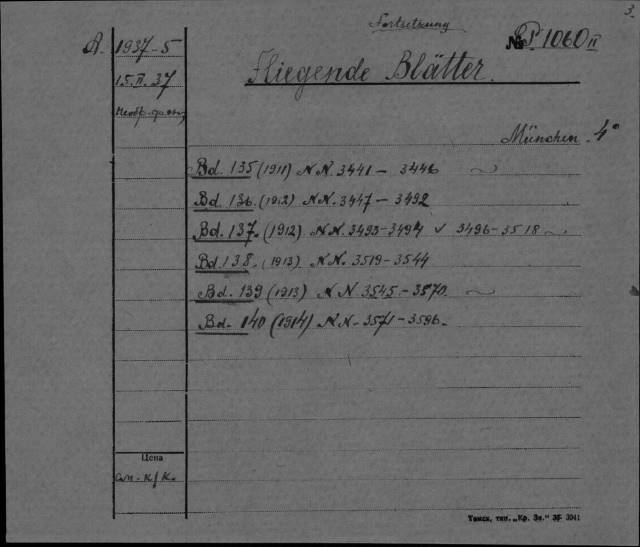 3.
Fortsetzung
А. 1937-5
№ P 1060 II
15.II.37
Fliegende Blätter.
München. 4°
Bd. 135 (1911) NN. 3441 - 3446
Bd. 136. (1912) NN. 3447 - 3492
Bd. 137. (1912) NN. 3493-3494 v 3496-3518
Bd. 138. (1913) NN. 3519-3544
Bd. 139 (1913) NN 3545-3570
Bd. 140 (1914) NN-3571-3596.
Цена
Томск, тип. „Кр. Зн." 3941